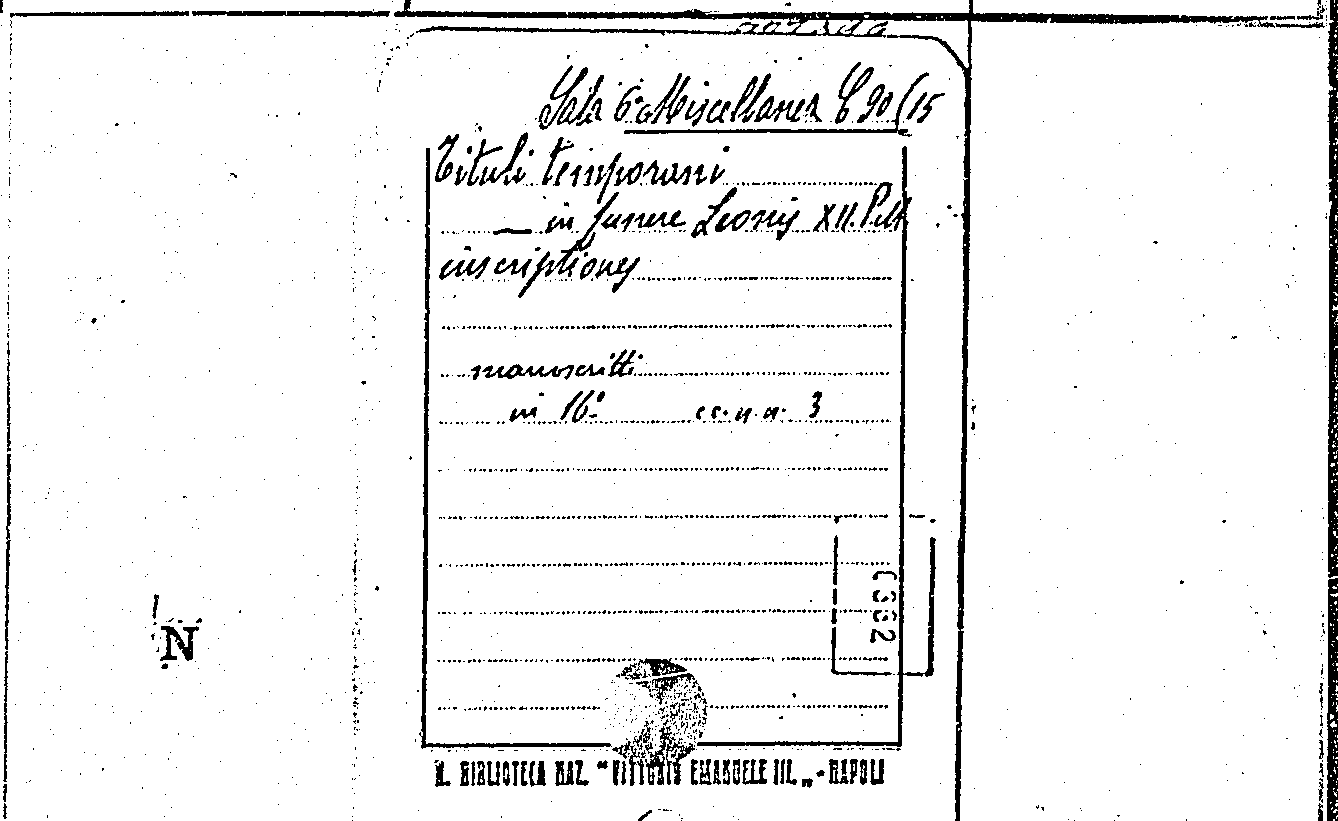 Sala 6ª Miscellanea C 90(15
Tituli temporani
— in funere Leonis XII. P.M.
inscriptiones
manoscritti
in 16º cc. n. n. 3
N
R. BIBLIOTECA NAZ. "VITTORIO EMANUELE III." - NAPOLI